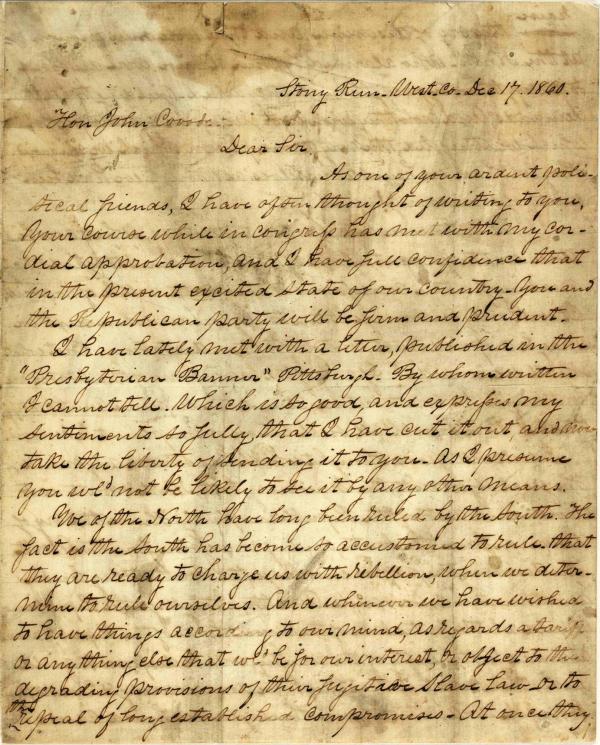 Stony Run. West. Co. Dec 17. 1860.
Hon John Covode
Dear Sir,
As one of your ardent poli-
tical friends, I have often thought of writing to you,
Your course while in congress has met with my cor-
dial approbation, and I have full confidence that
in the present excited state of our country. You and
the Republican party will be firm and prudent.
I have lately met with a letter, published in the
"Presbyterian Banner" Pittsburgh. By whom written
I cannot tell. Which is so good, and expresses my
sentiments so fully, that I have cut it out, and now
take the liberty of sending it to you. As I presume
you wd. not be likely to see it by any other means.
We of the North have long been ruled by the South. The
fact is the South has become so accustomed to rule. that
they are ready to charge us with rebellion, when we deter-
mine to rule ourselves. And whenever we have wished
to have things according to our mind, as regards a tariff
or any thing else that wd. be for our interest, or object to the
degrading provisions of their fugitive slave law or to
the repeal of long established compromises - At once they